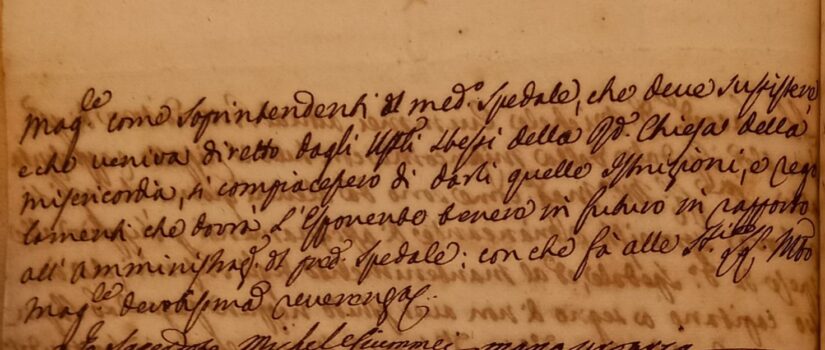 Mag.le come Soprintendenti di med.o Spedale, che deve sussistere,
e che veniva diretto dagli stessi della Chiesa della
misericordia, si compiacessero di darli quelle Istruzioni, e rego
lamenti che dovrà l'Esponente tenere in futuro in rapporto
all'amministraz.e di pred.o Spedale; con che fà alle
Mag.le devotissima reverenza
Sacerdote Michel mano propria